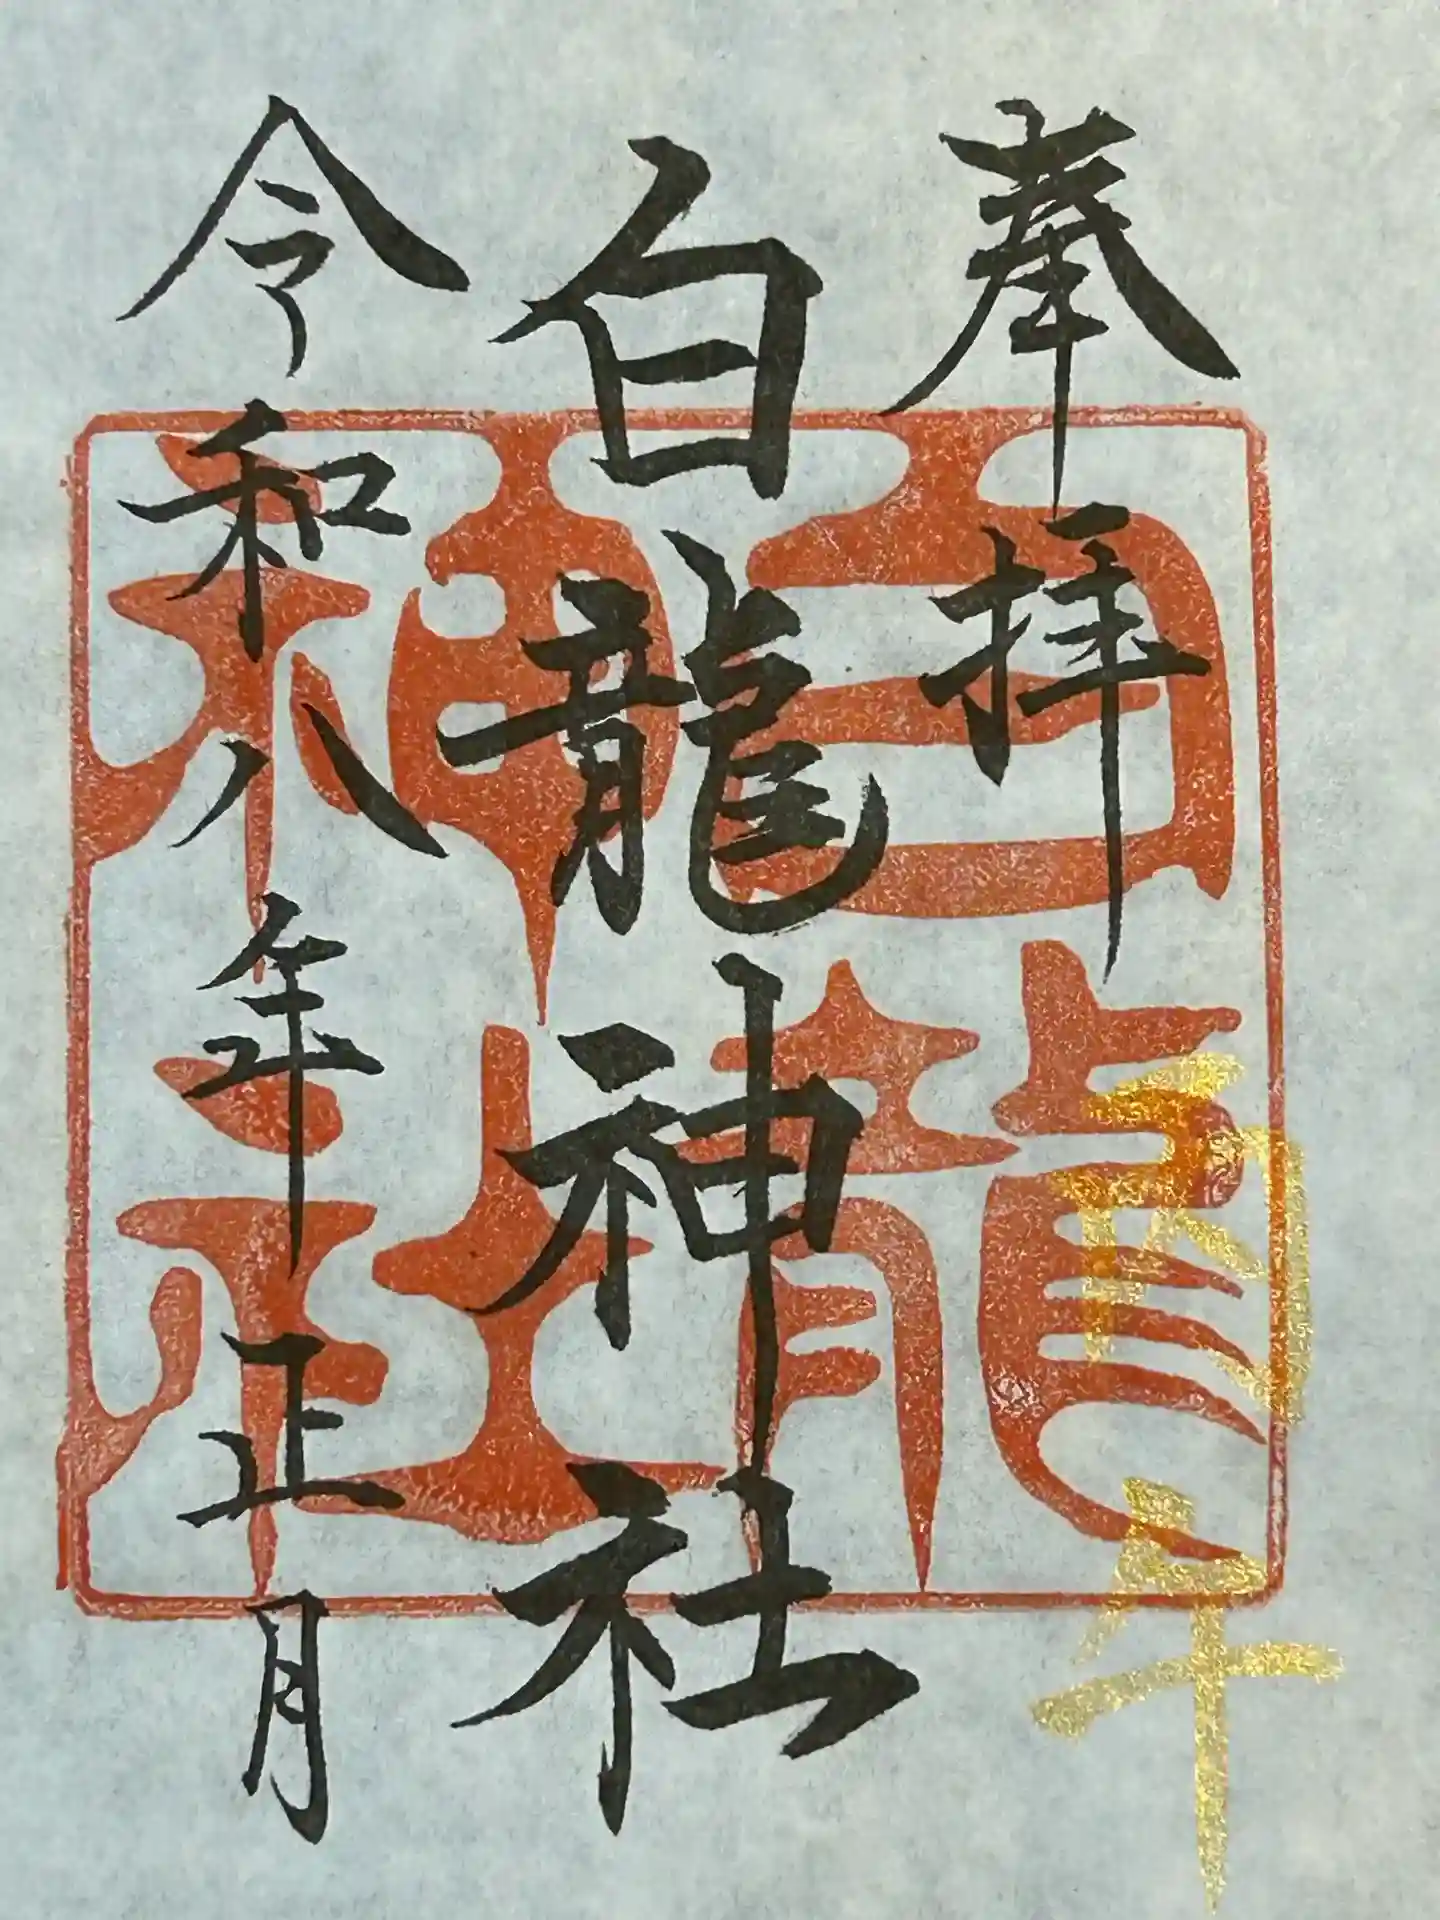 奉拝
丙午
白龍神社
白龍
神社
令和八年正月